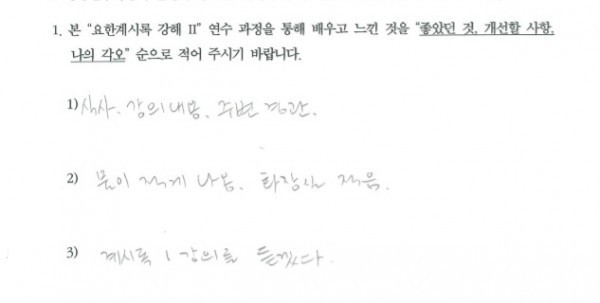 1. 본 "요한계시록 강해 II" 연수 과정을 통해 배우고 느낀 것을 "좋았던 것, 개선할 사항,
나의 각오" 순으로 적어 주시기 바랍니다.
1) 식사. 강의내용. 주변 경관.
2) 물이 적게 나옴. 화장실 적음.
3) 계시록 1 강의를 듣겠다.